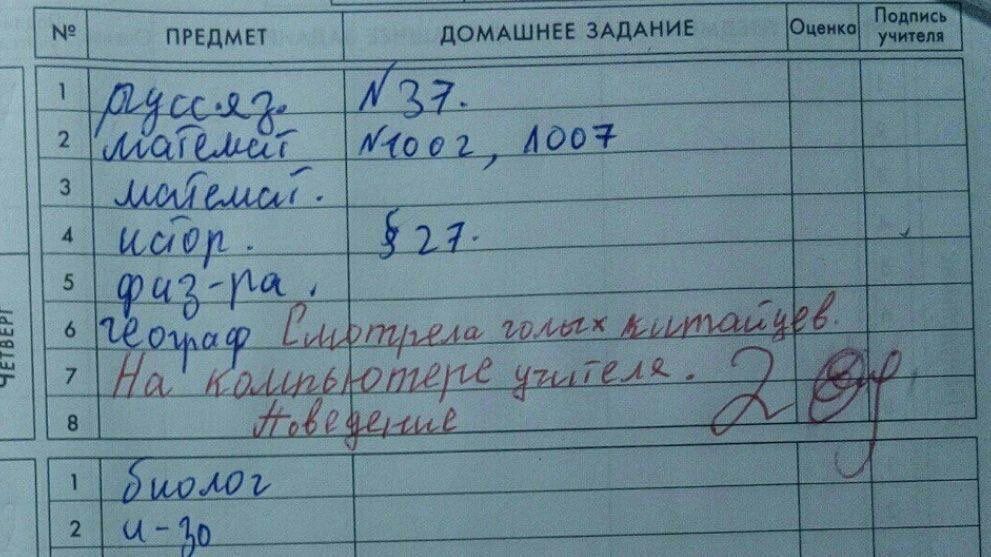 № ПРЕДМЕТ ДОМАШНЕЕ ЗАДАНИЕ Оценка Подпись учителя
1 русс.яз. №37.
2 математ №1002, 1007
3 математ.
4 истор. §27.
5 физ-ра.
6 географ Смотрела голых китайцев.
7 На компьютере учителя. 2
8 Поведение
ЧЕТВЕРГ
1 биолог
2 и-зо